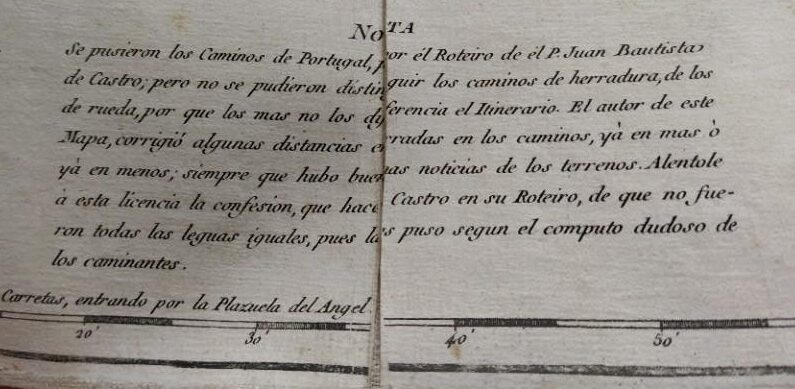 NOTA
Se pusieron los Caminos de Portugal, por él Roteiro de él P. Juan Bautista
de Castro; pero no se pudieron distinguir los caminos de herradura, de los
de rueda, por que los mas no los diferencia el Itinerario. El autor de este
Mapa, corrigió algunas distancias erradas en los caminos, yà en mas ò
yà en menos; siempre que hubo buenas noticias de los terrenos. Alentole
à esta licencia la confesion, que hace Castro en su Roteiro, de que no fue-
ron todas las leguas iguales, pues las puso segun el computo dudoso de
los caminantes.
Carretas, entrando por la Plazuela del Angel.
20' 30' 40' 50'